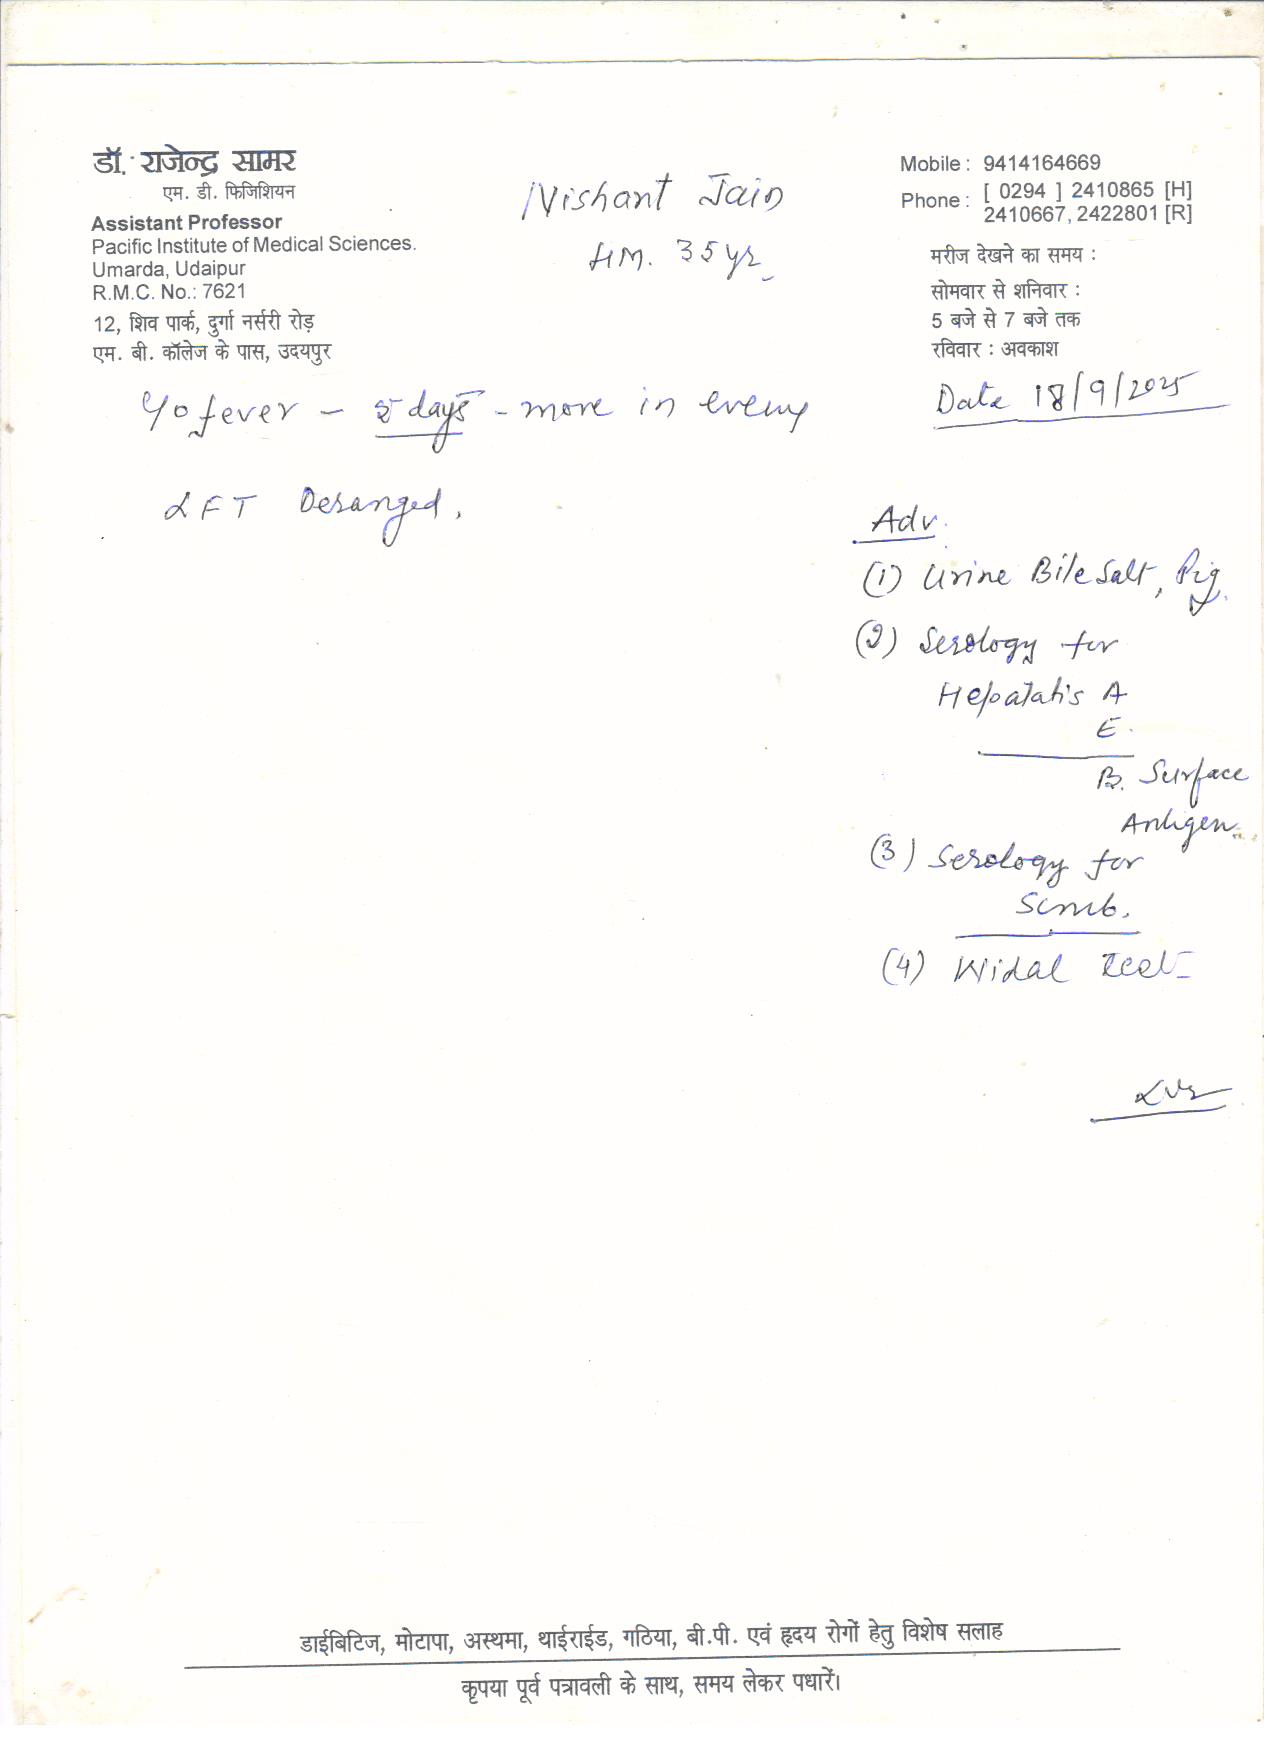 डॉ. राजेन्द्र सामर
एम. डी. फिजिशियन
Assistant Professor
Pacific Institute of Medical Sciences.
Umarda, Udaipur
R.M.C. No.: 7621
12, शिव पार्क, दुर्गा नर्सरी रोड़
एम. बी. कॉलेज के पास, उदयपुर
Nishant Jain
HM. 35yr
Mobile : 9414164669
Phone : [ 0294 ] 2410865 [H]
2410667, 2422801 [R]
मरीज देखने का समय :
सोमवार से शनिवार :
5 बजे से 7 बजे तक
रविवार : अवकाश
Date 18/9/2025
fever - days - more in eveng
LFT Deranged.
Adv.
(1) Urine Bile Salt, Pig.
(2) Serology for
Hepatatis A
E.
B. Surface
Antigen
(3) Serology for
Scrub.
(4) Widal Test
डाईबिटिज, मोटापा, अस्थमा, थाईराईड, गठिया, बी.पी. एवं हृदय रोगों हेतु विशेष सलाह
कृपया पूर्व पत्रावली के साथ, समय लेकर पधारें।